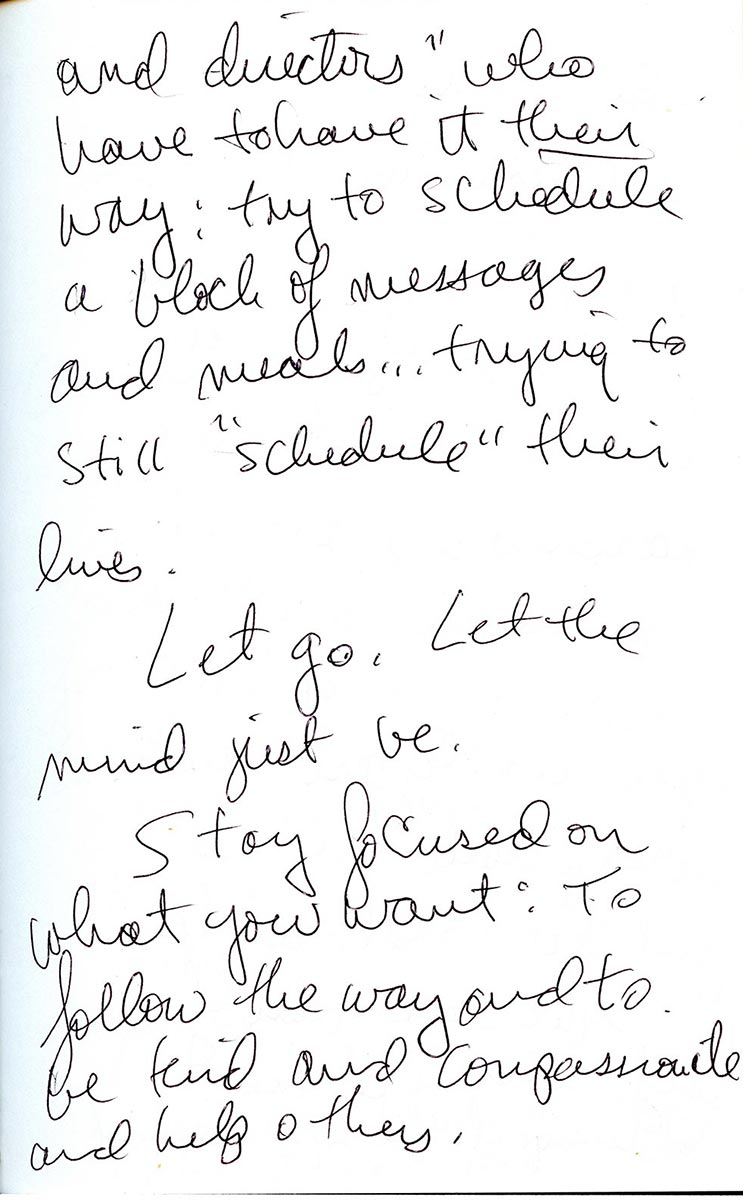 and directors" who
have to have it their
way: try to schedule
a block of messages
and meals... trying to
still "schedule" their
lives.
Let go. Let the
mind just be.
Stay focused on
what you want: To
follow the way and to
be kind and compassionate
and help others.